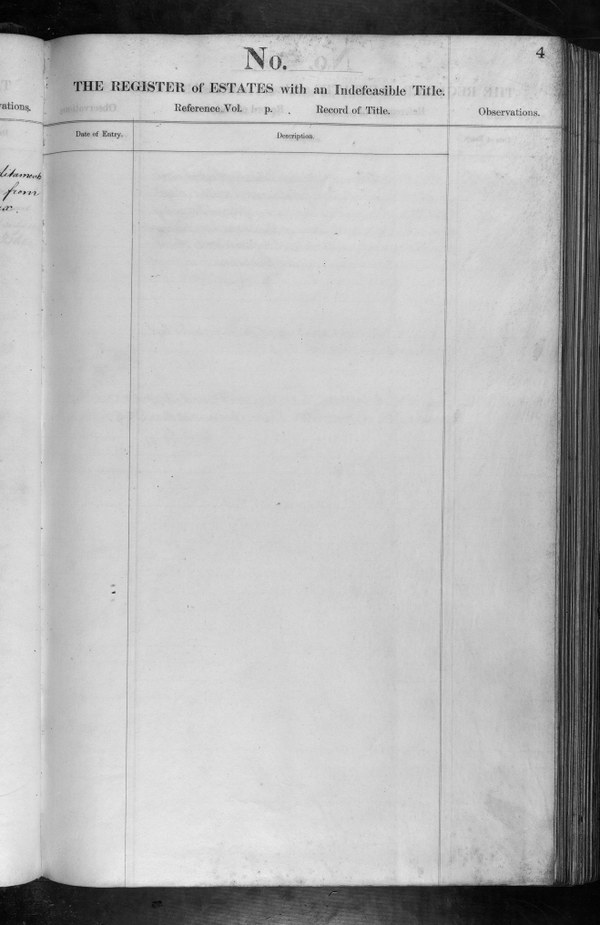 No.
4
THE REGISTER of ESTATES with an Indefeasible Title.
Reference Vol. p. . Record of Title.
Observations.
Date of Entry.
Description.
vations.
from